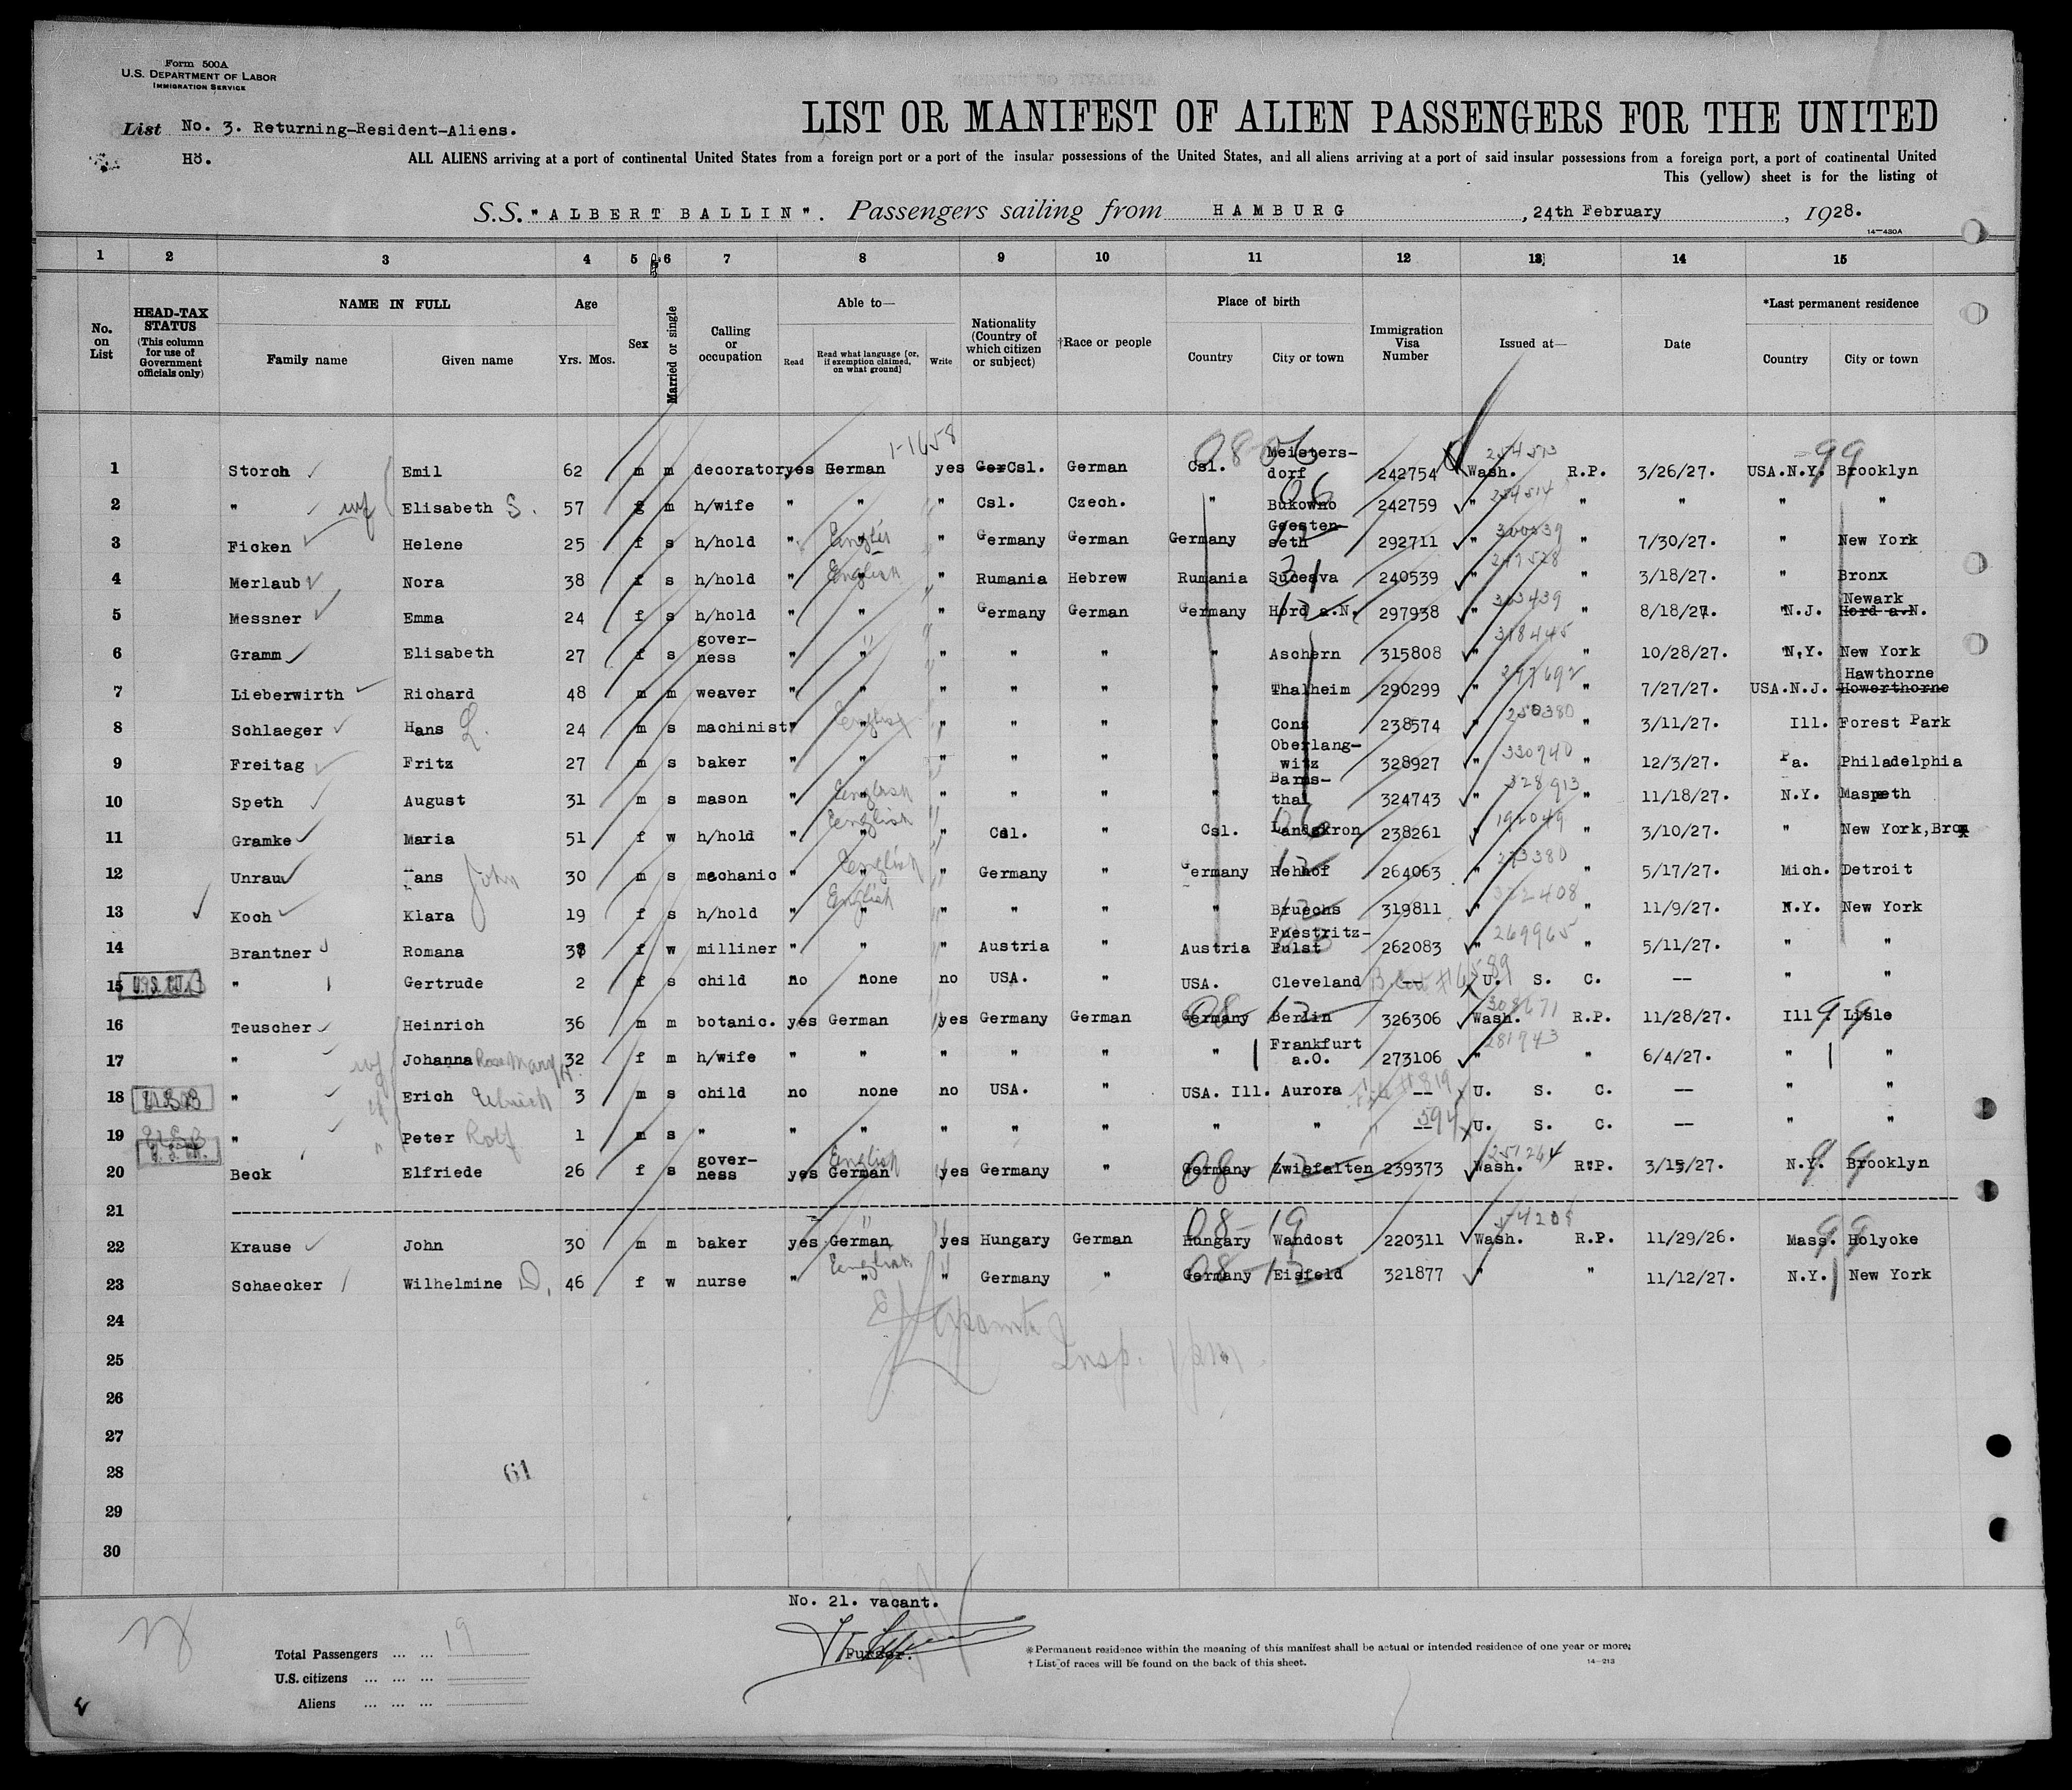 Form 500A
U.S. DEPARTMENT OF LABOR
IMMIGRATION SERVICE
LIST OR MANIFEST OF ALIEN PASSENGERS FOR THE UNITED
List No. 3. Returning-Resident-Aliens.
Hö.
ALL ALIENS arriving at a port of continental United States from a foreign port or a port of the insular possessions of the United States, and all aliens arriving at a port of said insular possessions from a foreign port, a port of continental United
This (yellow) sheet is for the listing of
S.S. "ALBERT BALLIN". Passengers sailing from HAMBURG, 24th February, 1928.
14—430A
1 2 3 4 5 6 7 8 9 10 11 12 13 14 15
No. on List
HEAD-TAX STATUS (This column for use of Government officials only)
NAME IN FULL
Family name Given name
Age
Yrs. Mos.
Sex
Married or single
Calling or occupation
Able to—
Read Read what language [or, if exemption claimed, on what ground] Write
Nationality (Country of which citizen or subject)
†Race or people
Place of birth
Country City or town
Immigration Visa Number
Issued at—
Date
*Last permanent residence
Country City or town
1-1658
1 Storch Emil 62 m m decorator yes German yes Ger Csl. German Csl. 08-06 Meistersdorf 242754 254513 Wash. R.P. 3/26/27. USA.N.Y. 99 Brooklyn
2 " wf Elisabeth S. 57 f m h/wife " " " Csl. Czech. " 06 Bukowno 242759 254514 " " " " "
3 Ficken Helene 25 f s h/hold " " " Germany German Germany Geestenseth 292711 300039 " " 7/30/27. " New York
4 Merlaub Nora 38 f s h/hold " " English " Rumania Hebrew Rumania 31 Suceava 240539 247528 " " 3/18/27. " Bronx
5 Messner Emma 24 f s h/hold " " " Germany German Germany 12 Hord a.N. 297938 303439 " " 8/18/27. "N.J. Newark Hord a.N.
6 Gramm Elisabeth 27 f s governess " " " " " " Aschern 315808 318445 " " 10/28/27. "N.Y. New York
7 Lieberwirth Richard 48 m m weaver " " " " " " Thalheim 290299 297692 " " 7/27/27. USA.N.J. Hawthorne Howerthorne
8 Schlaeger Hans L. 24 m s machinist " " English " " " " Cons 238574 250380 " " 3/11/27. Ill. Forest Park
9 Freitag Fritz 27 m s baker " " " " " " Oberlangwitz 328927 330940 " " 12/3/27. Pa. Philadelphia
10 Speth August 31 m s mason " " English " " " " Barmsthal 324743 328913 " " 11/18/27. N.Y. Maspeth
11 Gramke Maria 51 f w h/hold " " English " Csl. " Csl. 06 Landskron 238261 192049 " " 3/10/27. " New York, Bronx
12 Unrau Hans John 30 m s mechanic " " English " Germany " Germany 12 Rehhof 264063 273380 " " 5/17/27. Mich. Detroit
13 Koch Klara 19 f s h/hold " " English " " " " Bruechs 319811 322408 " " 11/9/27. N.Y. New York
14 Brantner Romana 38 f w milliner " " " Austria " Austria Fuestritz-Pulst 262083 269965 " " 5/11/27. " "
15 " Gertrude 2 f s child no none no USA. " USA. Cleveland -- U. S. C. -- " "
16 Teuscher Heinrich 36 m m botanic. yes German yes Germany German 08 Germany 12 Berlin 326306 308671 Wash. R.P. 11/28/27. Ill 99 Lisle
17 " wf Johanna Rose Mary 32 f m h/wife " " " " " " Frankfurt a.O. 273106 281943 " " 6/4/27. " "
18 " Erich Ulrich 3 m s child no none no USA. " USA. Ill. Aurora -- U. S. C. -- " "
19 " Peter Rolf 1 m s " " " " " " " " -- 594 U. S. C. -- " "
20 Beck Elfriede 26 f s governess yes German English yes Germany " 08 Germany 12 Zwiefalten 239373 251264 Wash. R.P. 3/15/27. N.Y. 99 Brooklyn
21
22 Krause John 30 m m baker yes German " yes Hungary German 08-19 Hungary Wandost 220311 Wash. R.P. 11/29/26. Mass. 99 Holyoke
23 Schaecker Wilhelmine D. 46 f w nurse " " English " Germany " 08-12 Germany Eisfeld 321877 " " 11/12/27. N.Y. New York
24
25
Insp.
26
27
28
61
29
30
No. 21. vacant.
Purser.
Total Passengers ... ... 19
U.S. citizens ... ... ...
Aliens ... ... ...
*Permanent residence within the meaning of this manifest shall be actual or intended residence of one year or more.
† List of races will be found on the back of this sheet.
14—213